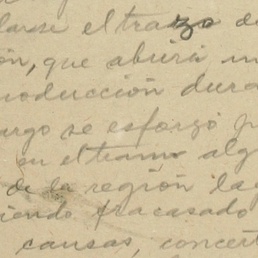 el trazo de
ón, que abrirá
producción dura
argo se esforzó
en el tramo alg
de la región "la
iendo fracasado
causas, concert